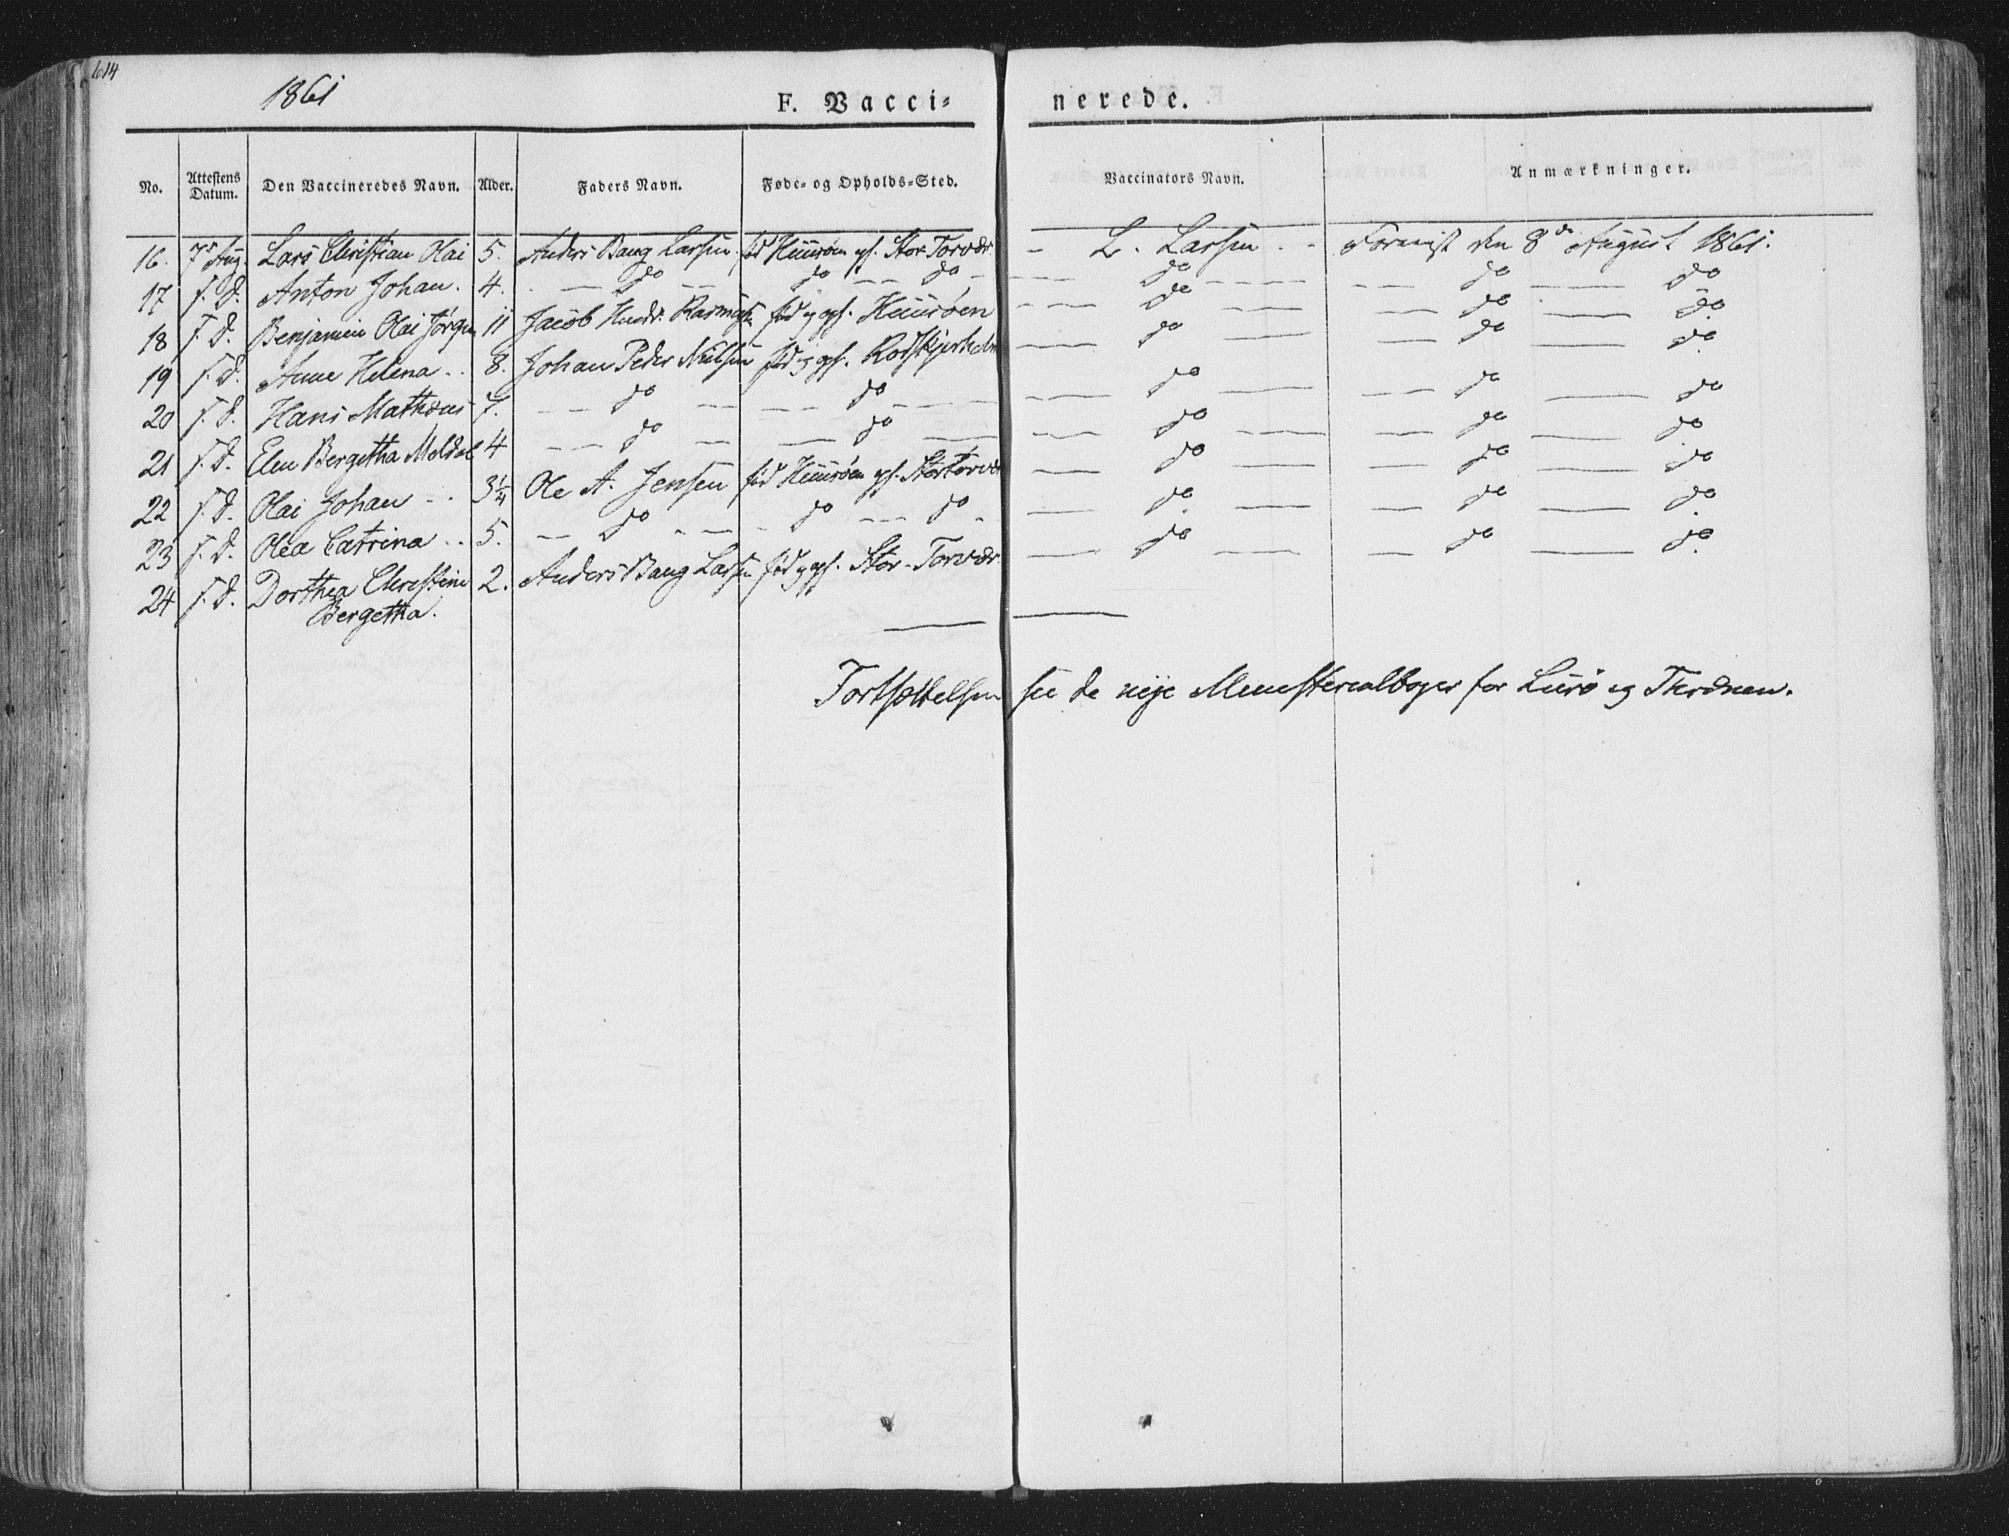 614
1861
F. Vacci= nerede.
No. Attestens Datum. Den Vaccineredes Navn. Alder. Faders Navn. Føde- og Opholds-Sted. Vaccinators Navn. Anmærkninger.
16. 7s Aug. Lars Christian Olai 5. Anders Baug Larsen fød Huusøen opf. Stor-Torvær - L. Larsen - - Fornist den 8de August 1861.
17 s. D. Anton Johan. 4. - do - do - do - do - do - do
18 s. D. Benjamin Olai Jørgen 11 Jacob Hendr. Rasmusen fød og opf. Huusøen - do - do - do
19 s. D. Anne Helena . . 8. Johan Peder Nielsen fød og opf. Rodskjerholm - do - do - do
20 s. D. Hans Mathæus 7. - do - do - do - do - do
21 s. D. Elen Bergetha Meldal 4 - do - do - do - do - do
22 s. D. Olai Johan - . 3 1/4 Ole A. Jensen fød Huusøen opf. Stortorvær - do - do - do
23 s. D. Olea Catrina . . 5. - do - do - do - do - do - do
24 s. D. Dorthea Christine 2. Anders Baug Larsen fød og opf. Stor-Torvær - do - do - do
Bergetha.
Fortsættelsen see de nye Ministerialbøger for Lurø og Trænen.